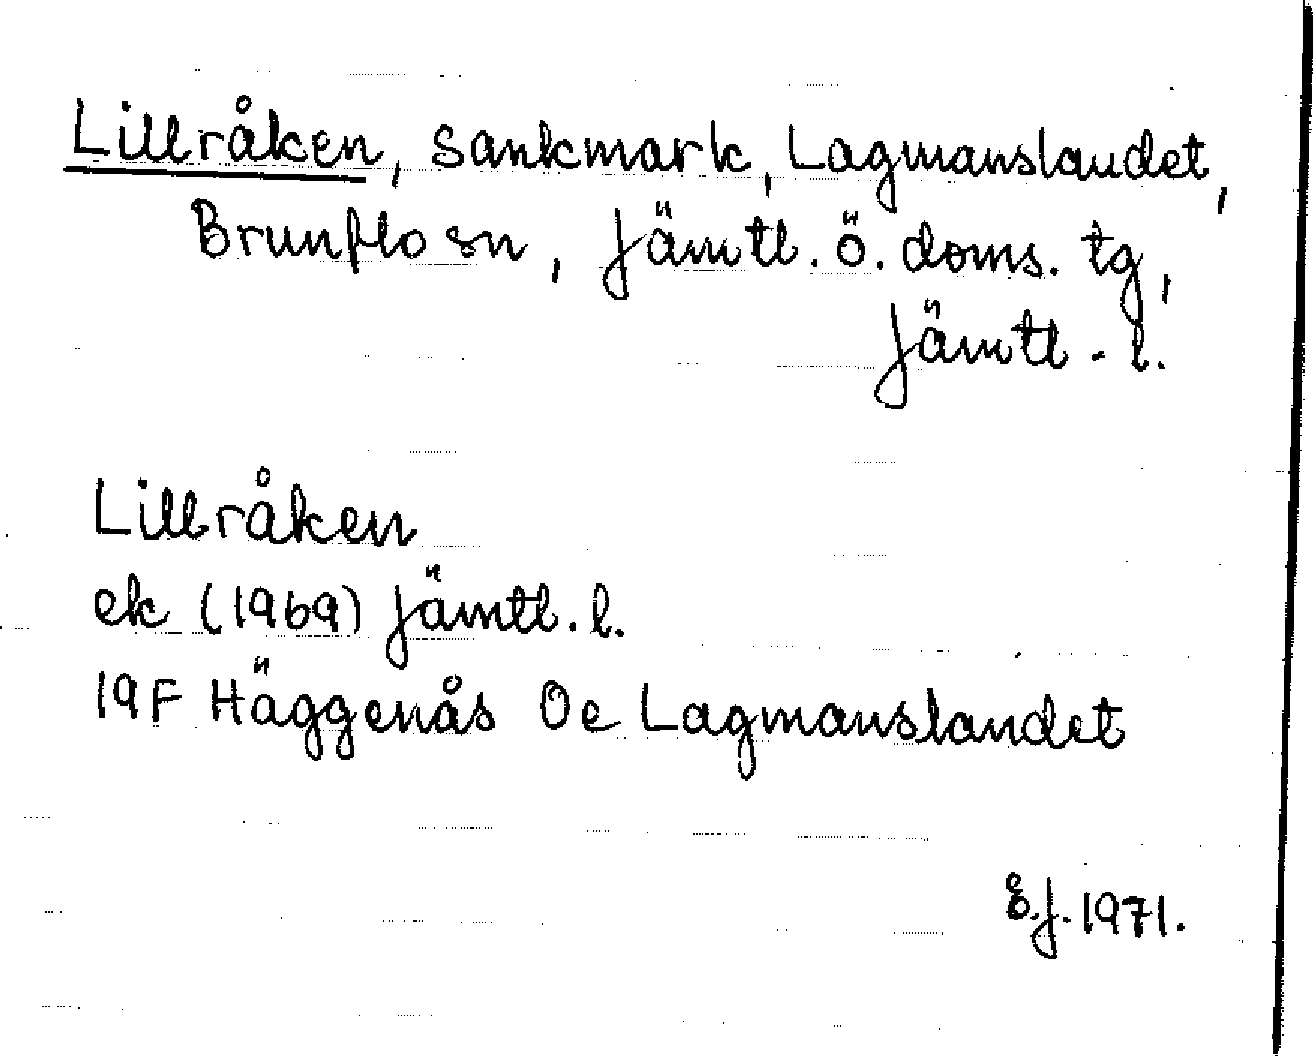 Lillråken, sankmark, Lagmanslandet,
Brunflo sn, Jämtl. ö. doms. tg,
Jämtl. l.
Lillråken
ek (1969) Jämtl. l.
19F Häggenås 0e Lagmanslandet
E.J. 1971.